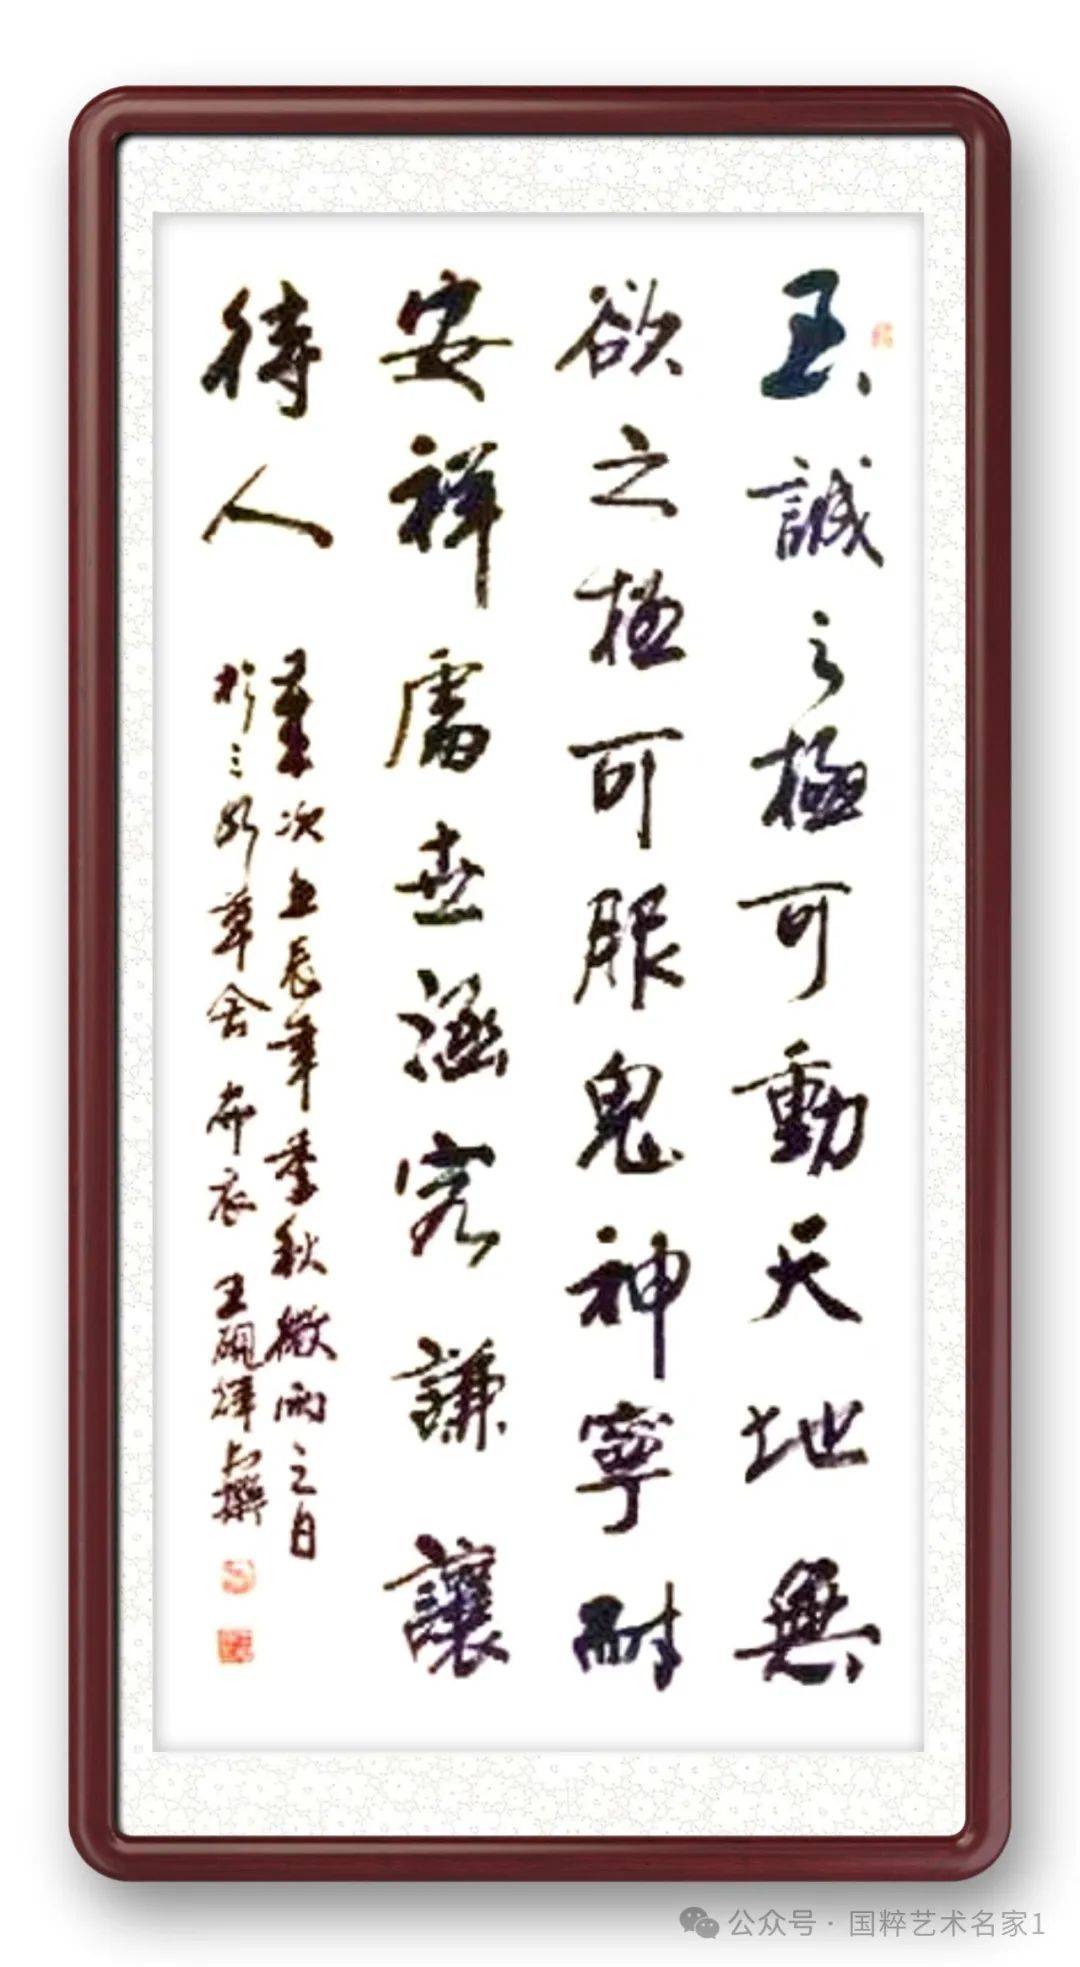 至誠之極可動天地無
欲之極可服鬼神寧耐
安祥處世涵容謙讓
待人
次 辰年季秋微雨之日
於三 草舍 布衣 王硯輝 撰
公众号 · 国粹艺术名家1